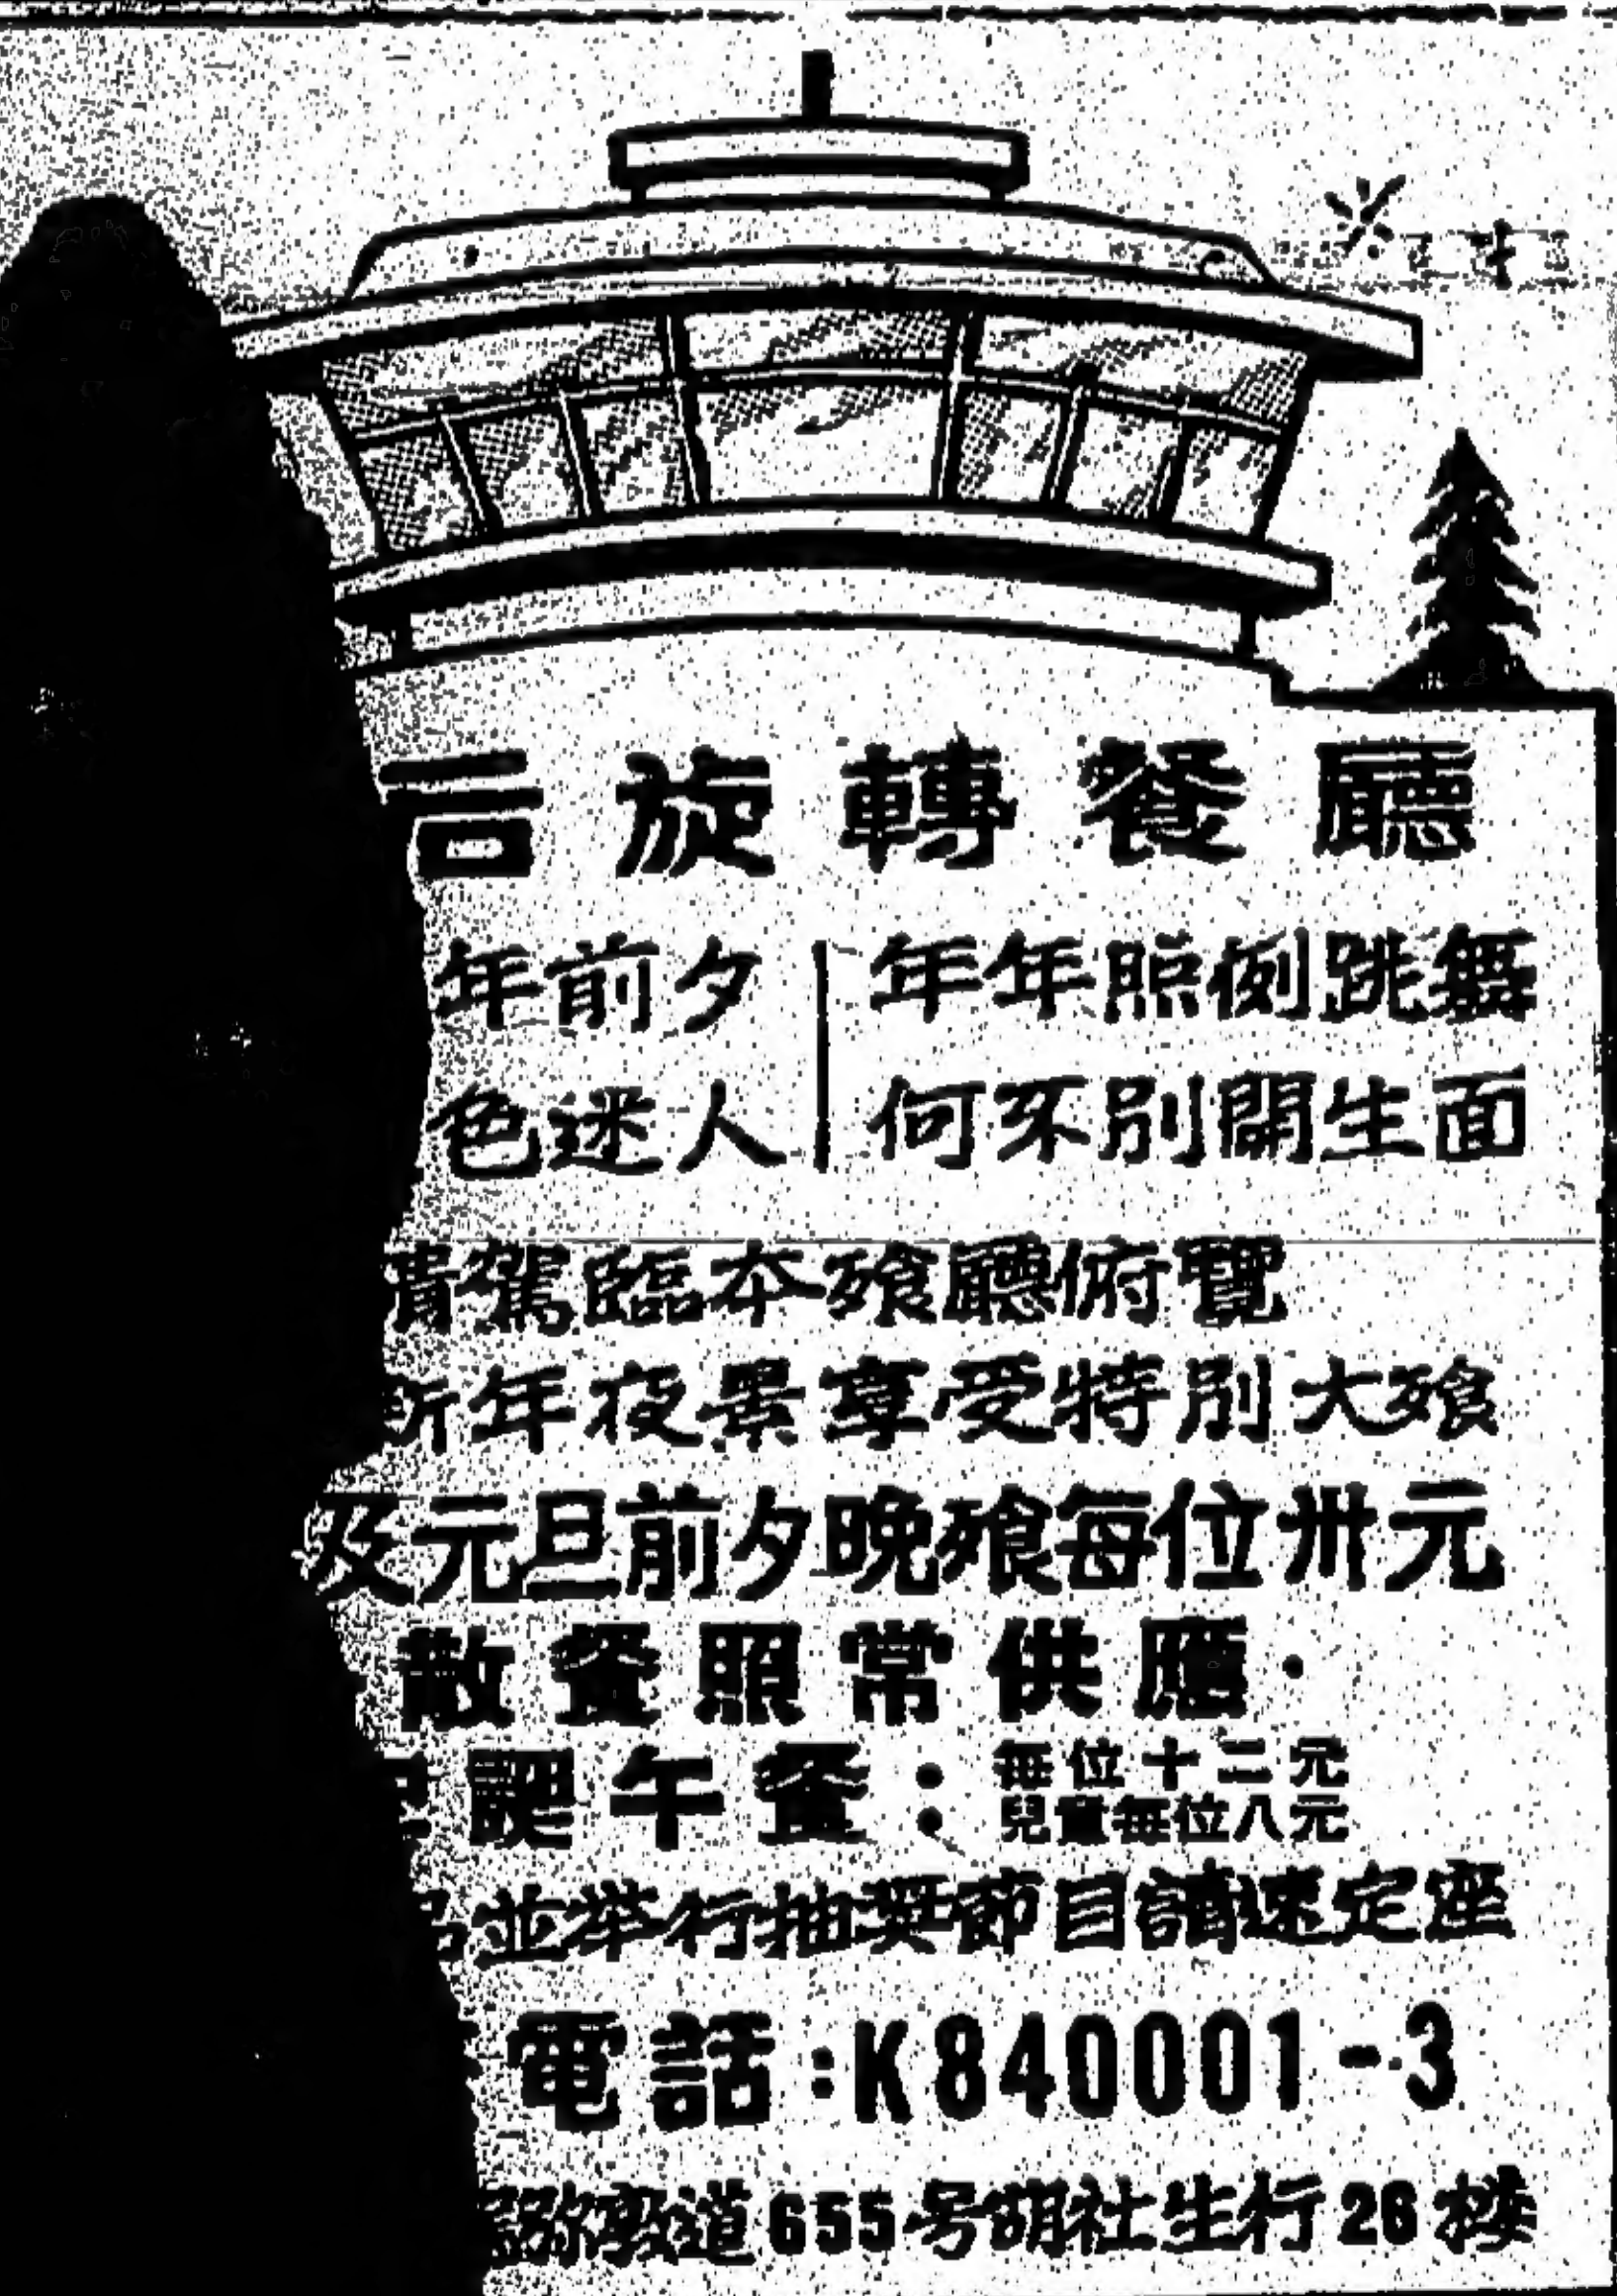 旋轉餐廳
年前夕 年年照例跳舞
色迷人 何不別開生面
請駕臨本飱廳俯覽
新年夜景享受特別大飱
及元旦前夕晚飱每位卅元
散餐照常供應·
誕午餐：每位十二元
兒童每位八元
並举行抽奬節目請速定座
電話:K840001-3
彌敦道655号胡社生行26楼